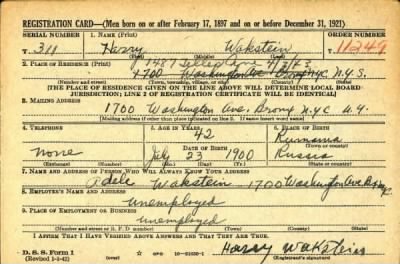 REGISTRATION CARD—(Men born on or after February 17, 1897 and on or before December 31, 1921)
SERIAL NUMBER 1. NAME (Print) ORDER NUMBER
T. 311 Harry Wakstein 11249
(First) (Middle) (Last)
2. PLACE OF RESIDENCE (Print) 1487
1700 Washington Ave Bronx N.Y.C. N.Y.S.
(Number and street) (Town, township, village, or city) (County) (State)
[THE PLACE OF RESIDENCE GIVEN ON THE LINE ABOVE WILL DETERMINE LOCAL BOARD
JURISDICTION; LINE 2 OF REGISTRATION CERTIFICATE WILL BE IDENTICAL]
3. MAILING ADDRESS
1700 Washington Ave. Bronx N.Y.C N.Y.
[Mailing address if other than place indicated on line 2. If same insert word same]
4. TELEPHONE 5. AGE IN YEARS 6. PLACE OF BIRTH
42 Rumania
none DATE OF BIRTH (Town or county)
July 23 1900 Russia
(Exchange) (Number) (Mo.) (Day) (Yr.) (State or country)
7. NAME AND ADDRESS OF PERSON WHO WILL ALWAYS KNOW YOUR ADDRESS
Adele Wakstein 1700 Washington Ave Bronx
8. EMPLOYER'S NAME AND ADDRESS
unemployed
9. PLACE OF EMPLOYMENT OR BUSINESS
unemployed
(Number and street or R. F. D. number) (Town) (County) (State)
I AFFIRM THAT I HAVE VERIFIED ABOVE ANSWERS AND THAT THEY ARE TRUE.
D. S. S. Form 1 Harry Wakstein
(Revised 1-1-42) (Registrant's signature)